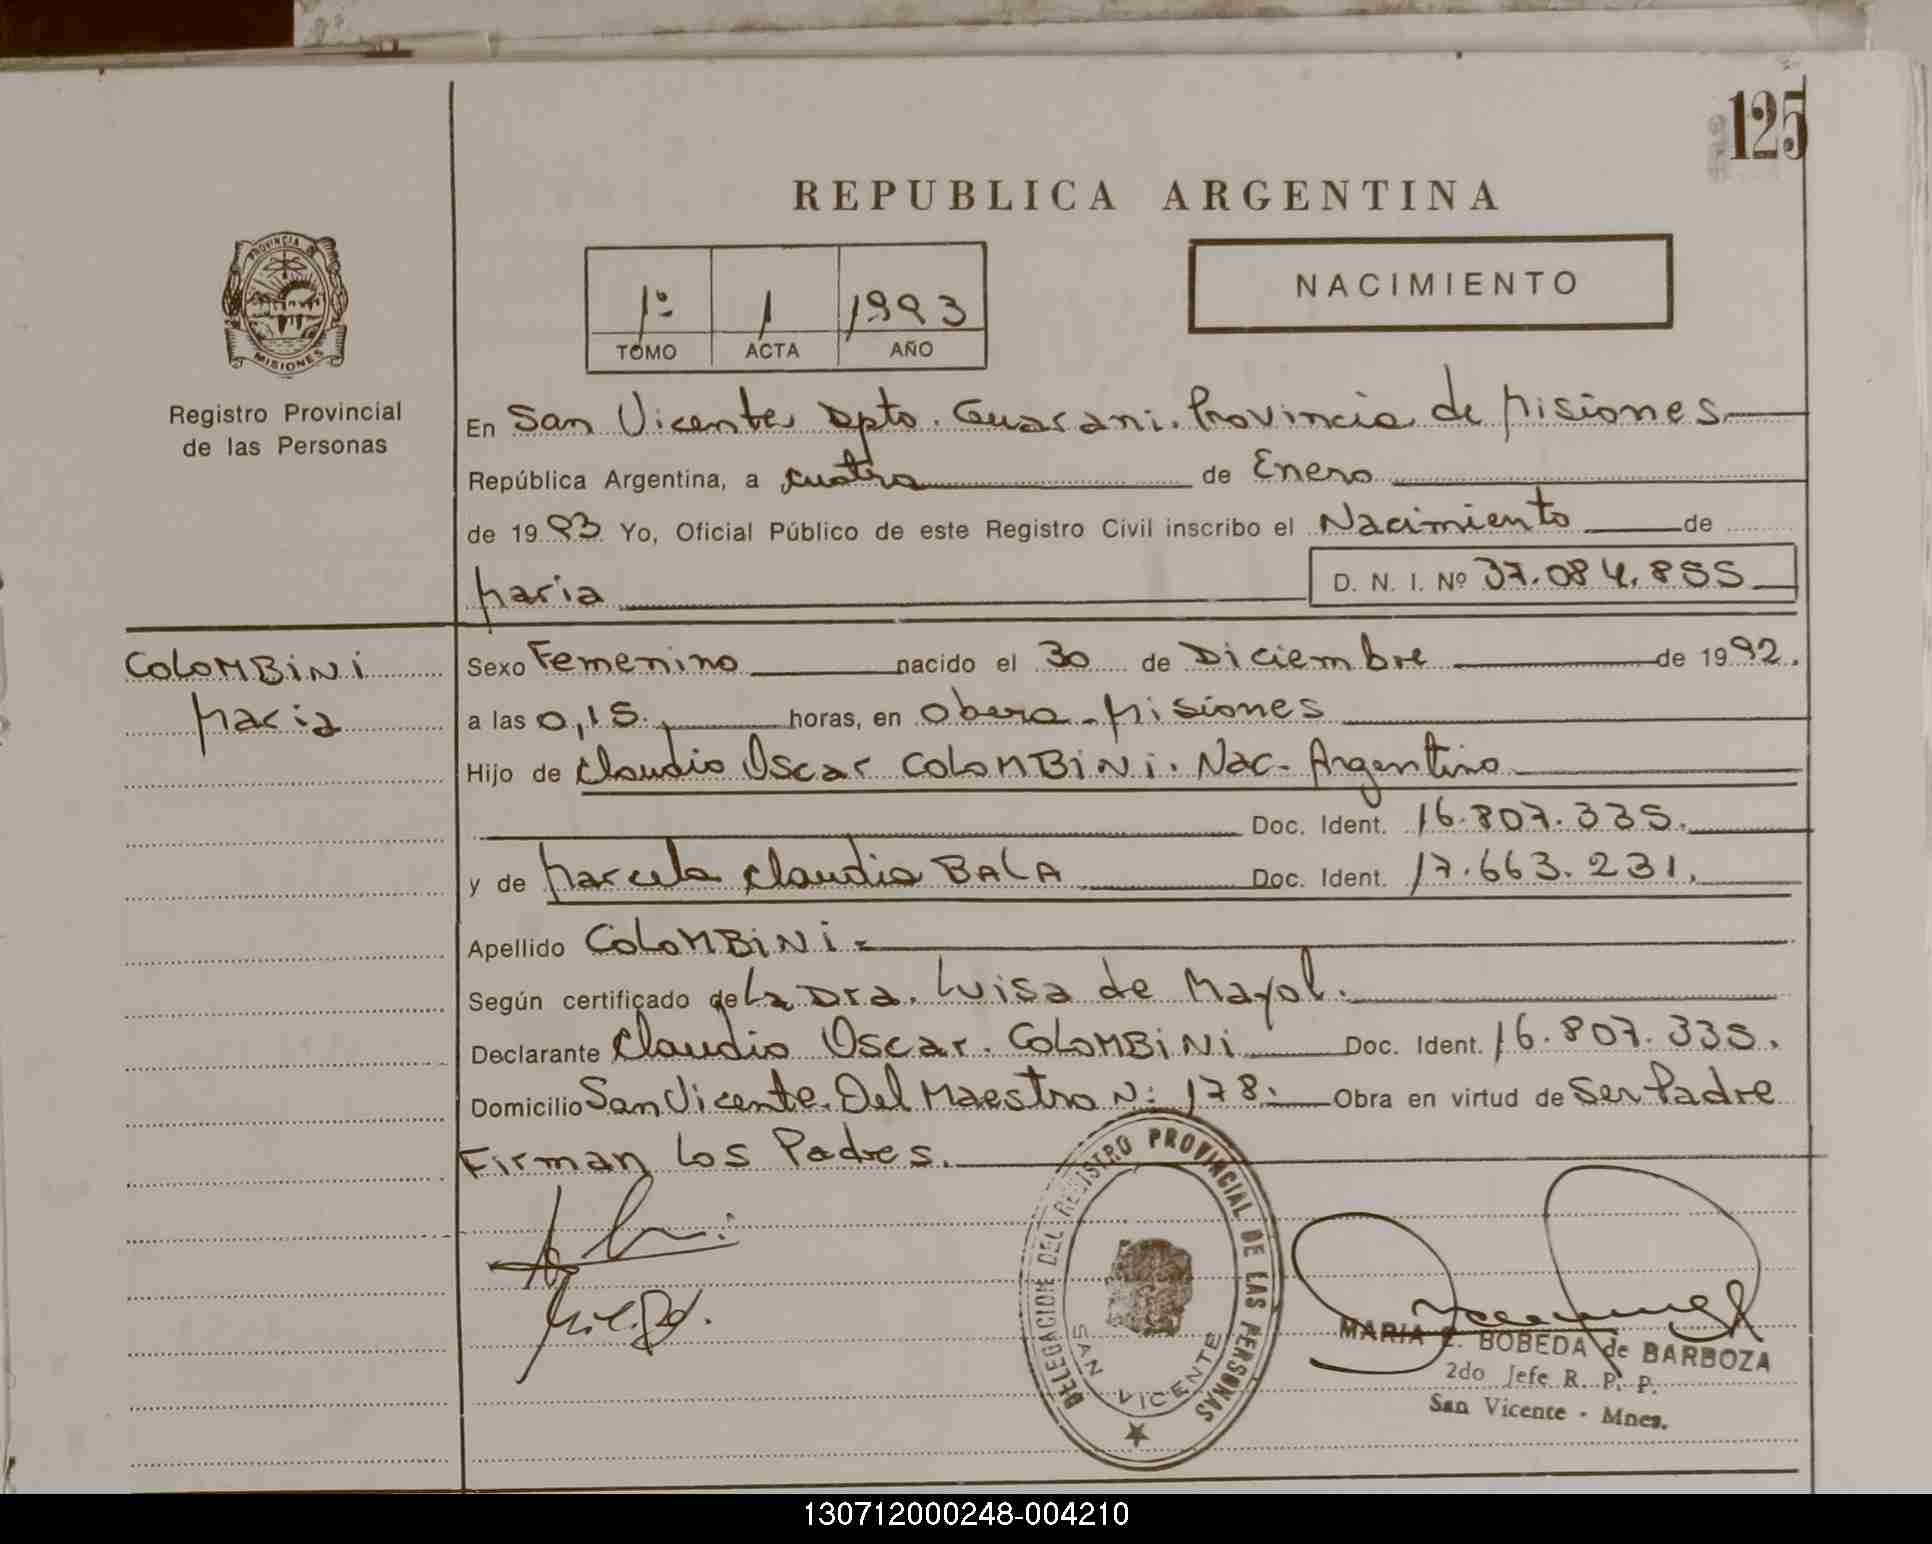 125
REPUBLICA ARGENTINA
PROVINCIA DE
MISIONES
Registro Provincial
de las Personas
1º 1 1993
TOMO ACTA AÑO
NACIMIENTO
En San Vicente Dpto. Guarani. Provincia de Misiones
República Argentina, a cuatro de Enero
de 1993 Yo, Oficial Público de este Registro Civil inscribo el Nacimiento de
Maria D. N. I. Nº 37.084.855
COLOMBINI
Maria
Sexo Femenino nacido el 30 de Diciembre de 1992.
a las 0,15. horas, en Obera - Misiones
Hijo de Claudio Oscar COLOMBINI. Nac. Argentino
Doc. Ident. 16.807.335.
y de Marcela Claudia BALA Doc. Ident. 17.663.231.
Apellido COLOMBINI.
Según certificado de La Dra. Luisa de Mayol.
Declarante Claudio Oscar. COLOMBINI Doc. Ident. 16.807.335.
Domicilio San Vicente. Del Maestro N: 178. Obra en virtud de Ser Padre
Firman Los Padres.
DELEGACION DEL REGISTRO PROVINCIAL DE LAS PERSONAS
SAN VICENTE
MARIA E. BOBEDA de BARBOZA
2do Jefe R. P. P.
San Vicente - Mnes.
130712000248-004210